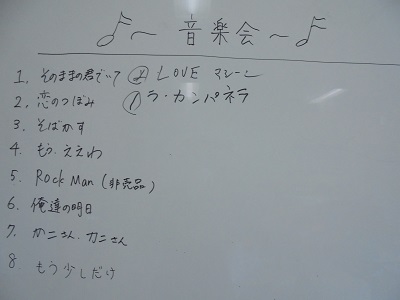 ♪〜 音楽会 〜♪
1. そのままの君でいて ② LOVE マシーン
2. 恋のつぼみ ① ラ・カンパネラ
3. そばかす
4. もう、ええわ
5. Rock Man (非売品)
6. 俺達の明日
7. かニさん、カニさん
8 もう少しだけ